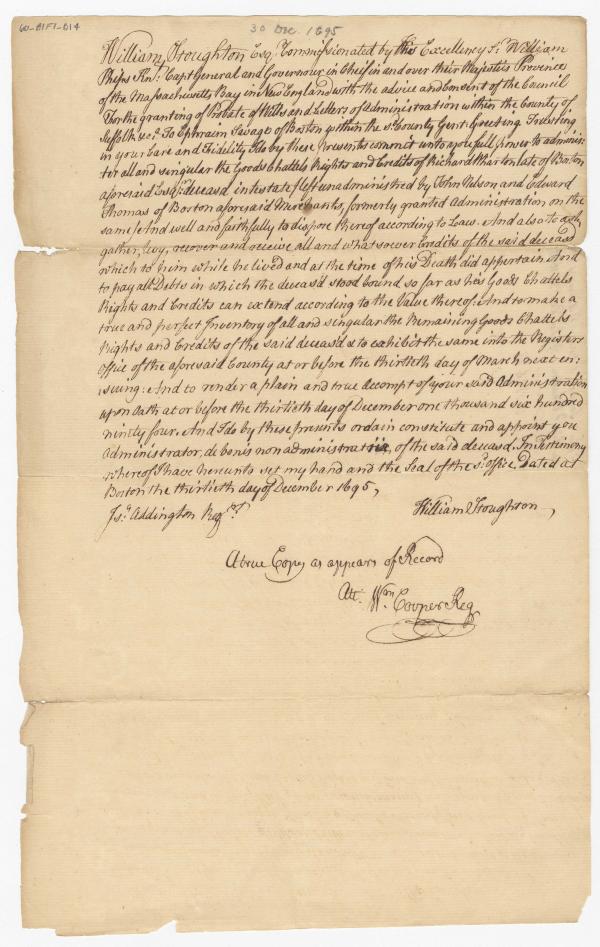 60-M1F1-D14
30 Dec. 1695
William Stoughton Esqr. Commissionated by His Excellency Sr. William
Phips Knt. Capt General and Governour in Cheif in and over their Majesties Province
of the Massachusetts Bay in New England with the advice and Consent of the Council
For the granting of Probate of Wills and Letters of Administration within the County of
Suffolk &ca. To Ephraim Savage of Boston within the sd. County Gent: Greeting Trusting
in your Care and Fidelity I do by these Presents commit unto you full power to adminis:
ter all and singular the Goods Chattels Rights and Credits of Richard Wharton late of Boston
aforesaid Esqr. deceased intestate left unadministred by John Nelson and Edward
Thomas of Boston aforesaid Merchants, formerly granted Administration on the
same And well and faithfully to dispose thereof according to Law. And also to ask
gather, levy, recover and receive all and whatsoever Credits of the said deceasd
which to him while he lived and at the time of his Death did appertain And
to pay all Debts in which the deceasd stood bound so far as his Goods Chattels
Rights and Credits can extend according to the Value thereof: And to make a
true and perfect Inventory of all and singular the Remaining Goods Chattels
Rights and Credits of the said deceasd & to exhibit the same into the Registers
Office of the aforesaid County at or before the thirtieth day of March next en:
suing: And to render a plain and true Accompt of your said Administration
upon Oath at or before the thirtieth day of December one thousand six hundred
ninty four. And I do by these presents ordain constitute and appoint you
Administrator, de bonis non administratis, of the said deceasd. In Testimony
whereof I have hereunto set my hand and the Seal of the sd. office. Dated at
Boston the thirtieth day of December 1695,
Jsa. Addington Regr.
William Stoughton,
A true Copy as appears of Record
Att: Wm. Cooper Reg